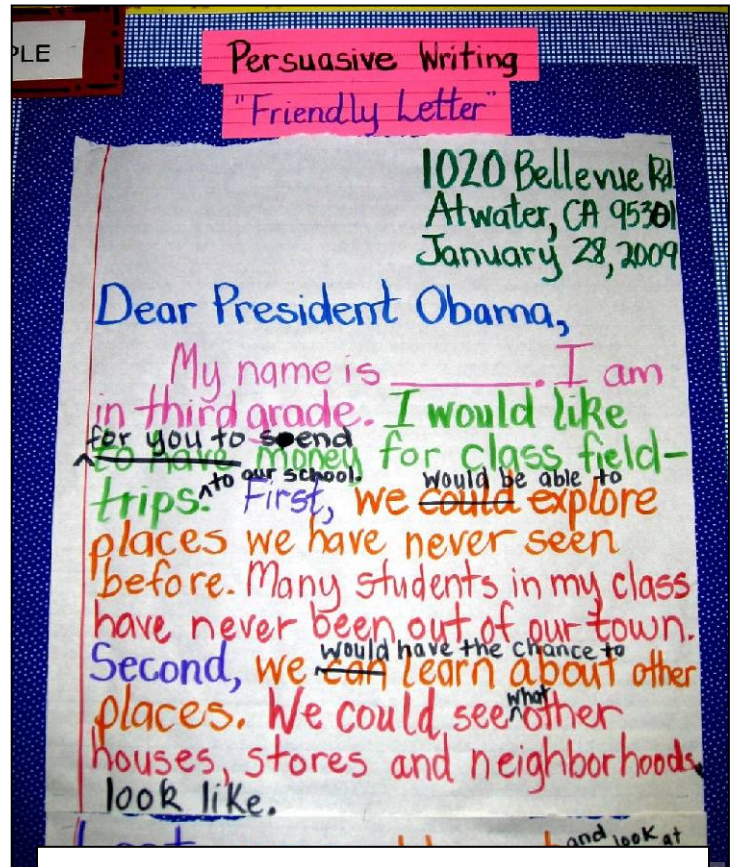 PLE
Persuasive Writing
"Friendly Letter"
1020 Bellevue Rd.
Atwater, CA 95301
January 28, 2009
Dear President Obama,
My name is ______. I am
in third grade. I would like
for you to send
to have money for class field-
to our school. would be able to
trips. First, we could explore
places we have never seen
before. Many students in my class
have never been out of our town.
would have the chance to
Second, we can learn about other
what
places. We could see other
houses, stores and neighborhoods
look like.
and look at